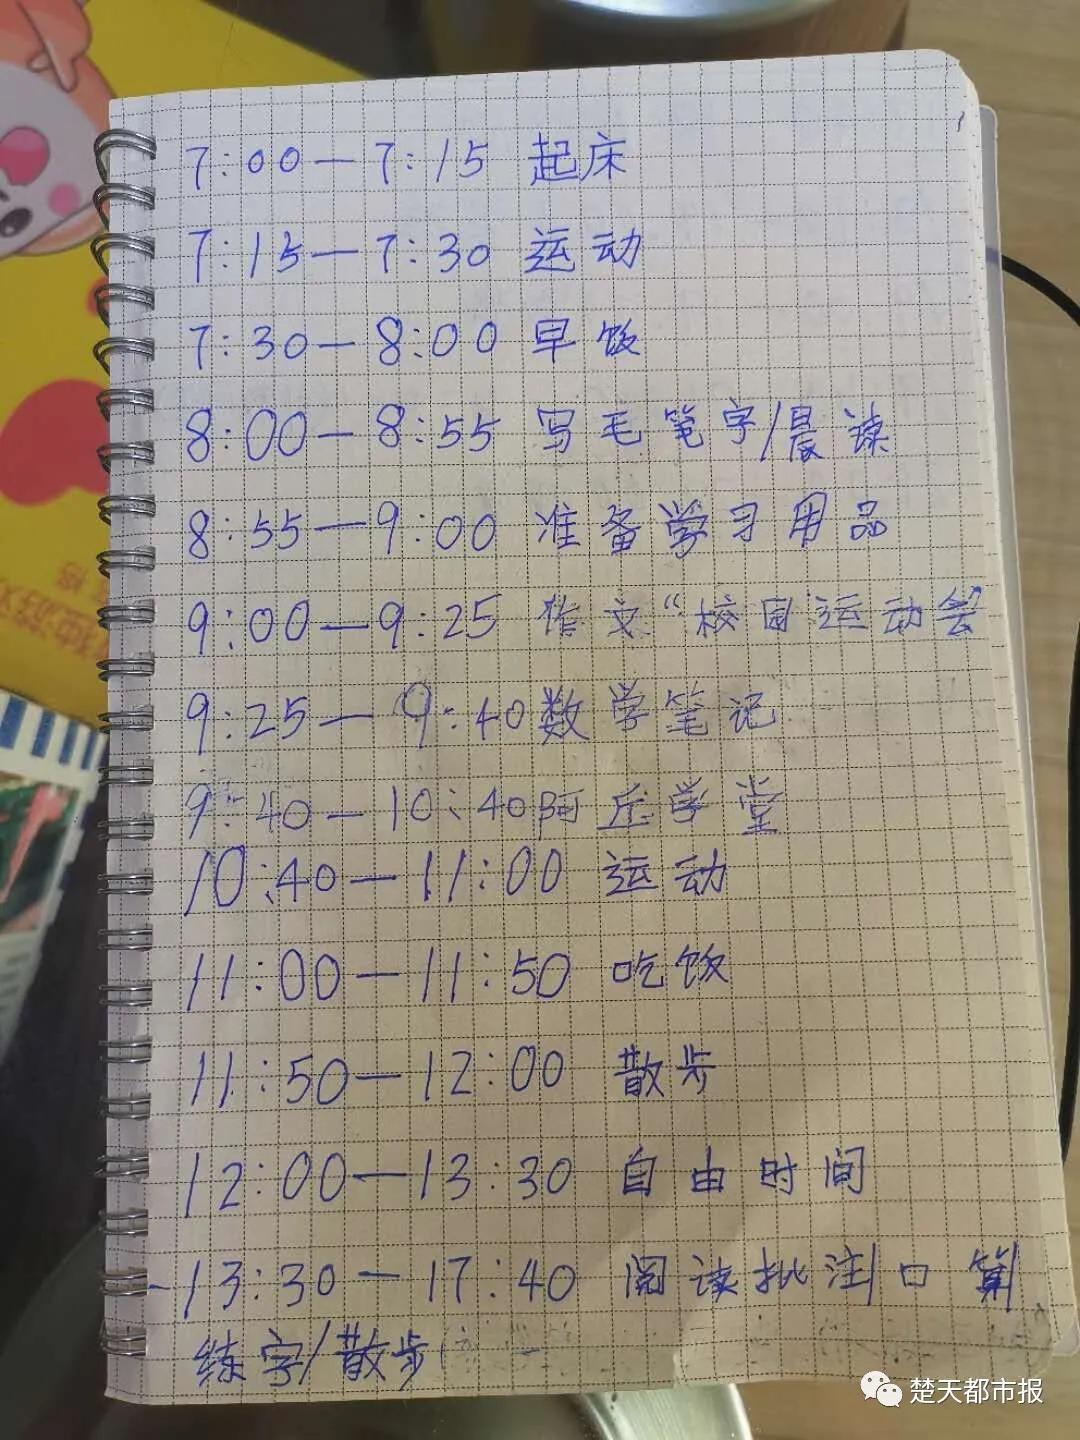 7:00—7:15 起床
7:15—7:30 运动
7:30—8:00 早饭
8:00—8:55 写毛笔字/晨读
8:55—9:00 准备学习用品
9:00—9:25 作文“校园运动会”
9:25—9:40数学笔记
9:40—10:40阿丘学堂
10:40—11:00 运动
11:00—11:50 吃饭
11:50—12:00 散步
12:00—13:30 自由时间
13:30—17:40 阅读批注/口算/
练字/散步
楚天都市报